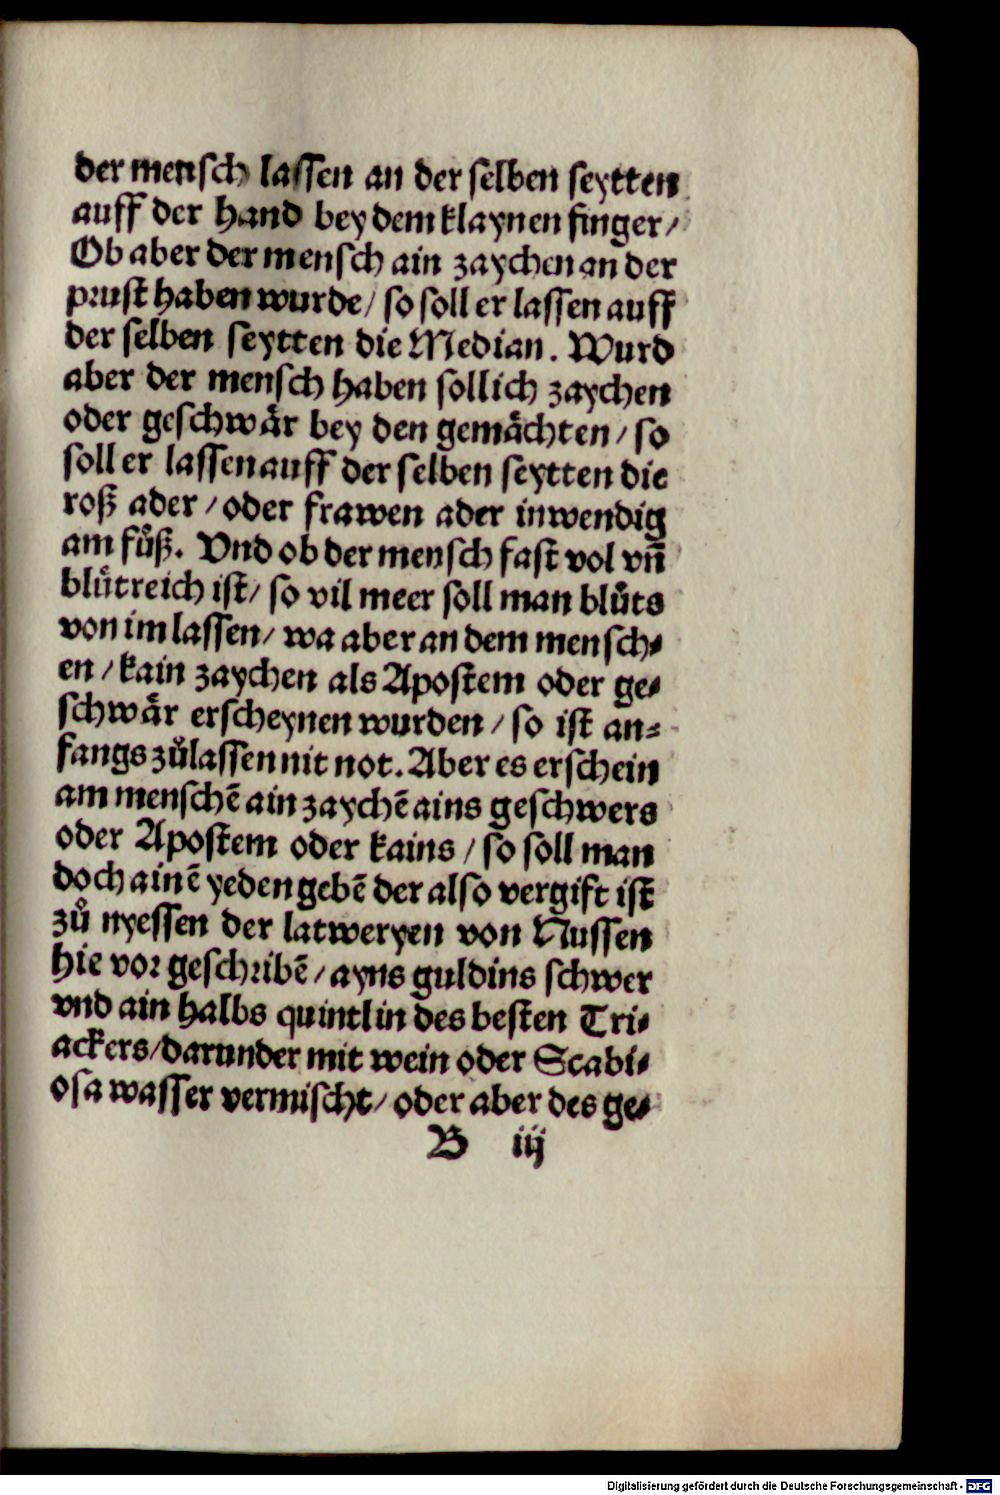 der mensch lassen an der selben seytten
auff der hand bey dem klaynen finger/
Ob aber der mensch ain zaychen an der
prust haben wurde/ so soll er lassen auff
der selben seytten die Median. Wurd
aber der mensch haben sollich zaychen
oder geschwaͤr bey den gemaͤchten/ so
soll er lassen auff der selben seytten die
roß ader/ oder frawen ader inwendig
am fuͦß. Vnd ob der mensch fast vol vñ
bluͦtreich ist/ so vil meer soll man bluͦts
von im lassen/ wa aber an dem mensch⸗
en/ kain zaychen als Apostem oder ge⸗
schwaͤr erscheynen wurden/ so ist an⸗
fangs zuͦlassen nit not. Aber es erschein
am menschē ain zaychē ains geschwers
oder Apostem oder kains/ so soll man
doch ainē yeden gebē der also vergift ist
zuͦ nyessen der latweryen von Nussen
hie vor geschribē/ ayns guldins schwer
vnd ain halbs quintlin des besten Tri⸗
ackers/darunder mit wein oder Scabi⸗
osa wasser vermischt/ oder aber des ge⸗
B iij
Digitalisierung gefördert durch die Deutsche Forschungsgemeinschaft - DFG